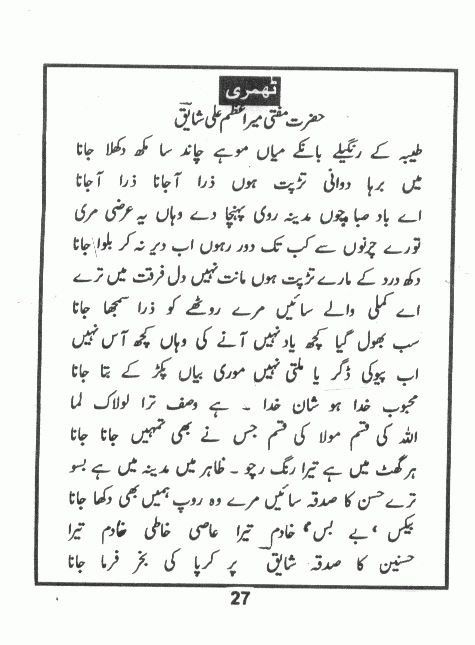 ٹھمری
حضرت مفتی میر اعظم علی شایقؔ
طیبہ کے رنگیلے بانکے میاں موہے چاند سا مکھ دکھلا جانا
میں برہا دوانی تڑپت ہوں ذرا آجانا ذرا آجانا
اے باد صبا چوں مدینہ روی پہنچا دے وہاں یہ عرضی مری
تورے چرنوں سے کب تک دور رہوں اب دیر نہ کر بلوا جانا
دکھ درد کے مارے تڑپت ہوں مانت نہیں دل فرقت میں ترے
اے کملی والے سائیں مرے روٹھے کو ذرا سمجھا جانا
سب بھول گیا کچھ یاد نہیں آنے کی وہاں کچھ آس نہیں
اب پیوکی ڈگر یا ملتی نہیں موری بیاں پکڑ کے بتا جانا
محبوب خدا ہو شان خدا ۔ ہے وصف ترا لولاک لما
اللہ کی قسم مولا کی قسم جس نے بھی تمہیں جانا جانا
ہر گھٹ میں ہے تیرا رنگ رچو ۔ ظاہر میں مدینہ میں ہے بسو
ترے حسن کا صدقہ سائیں مرے وہ روپ ہمیں بھی دکھا جانا
بیکس ، بے بس ، خادم تیرا عاصی خاطی خادم تیرا
حسنین کا صدقہ شایقؔ پر کرپا کی نجر فرما جانا
27